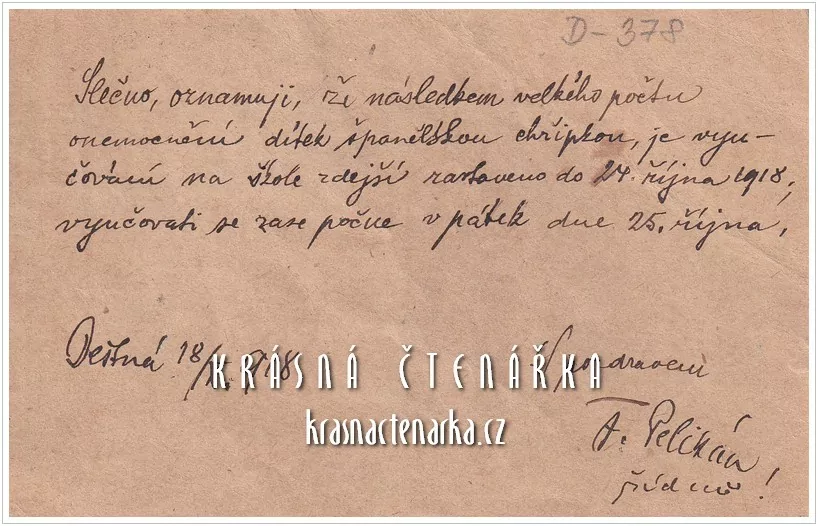 D-378
Slečno, oznamuji, že následkem velkého počtu
onemocnění dítek španělskou chřipkou, je vyu-
čování na škole zdejší zastaveno do 24. října 1918;
vyučovati se zase počne v pátek dne 25. října,
Deštná 18/ 1918
S pozdravem
KRÁSNÁ ČTENÁŘKA
krasnactenarka.cz
F. Pelikán